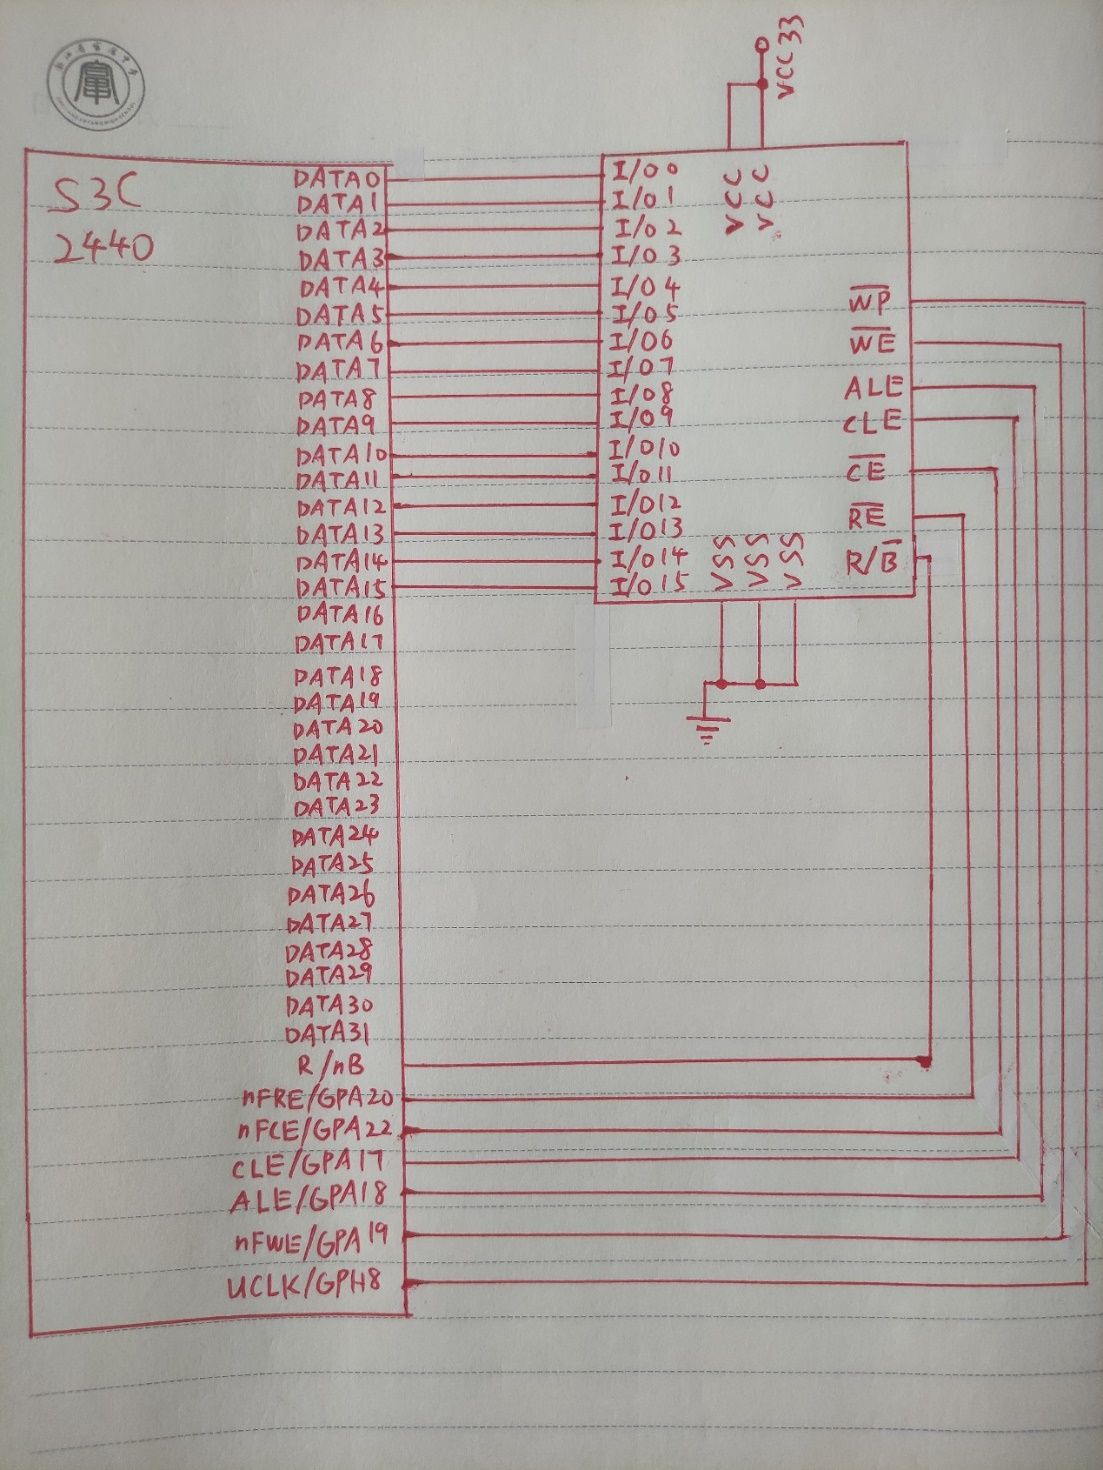 VCC33
S3C
2440
DATA0
DATA1
DATA2
DATA3
DATA4
DATA5
DATA6
DATA7
DATA8
DATA9
DATA10
DATA11
DATA12
DATA13
DATA14
DATA15
DATA16
DATA17
DATA18
DATA19
DATA20
DATA21
DATA22
DATA23
DATA24
DATA25
DATA26
DATA27
DATA28
DATA29
DATA30
DATA31
R/nB
nFRE/GPA20
nFCE/GPA22
CLE/GPA17
ALE/GPA18
nFWE/GPA19
UCLK/GPH8
I/O0
I/O1
I/O2
I/O3
I/O4
I/O5
I/O6
I/O7
I/O8
I/O9
I/O10
I/O11
I/O12
I/O13
I/O14
I/O15
VCC
VCC
VSS
VSS
VSS
W̅P̅
W̅E̅
ALE
CLE
C̅E̅
R̅E̅
R/B̅